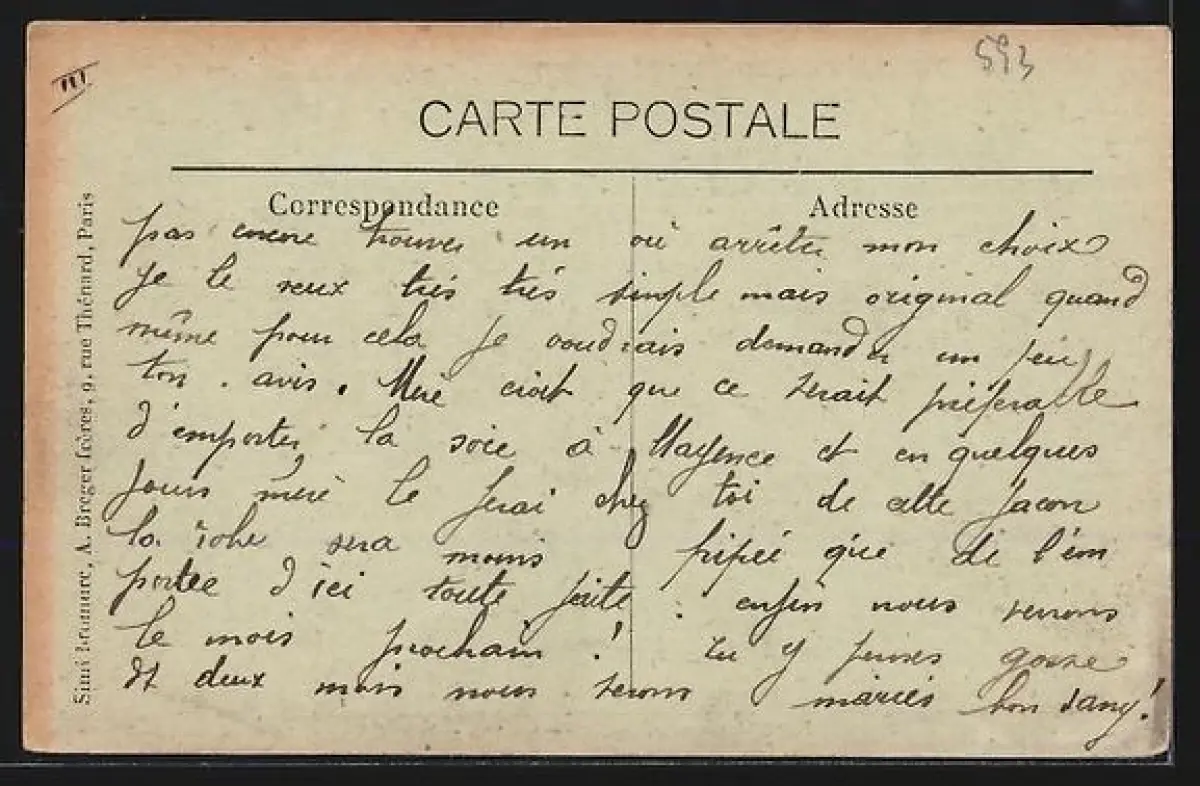 III
593
CARTE POSTALE
Correspondance
Adresse
Simi-bromure, A. Breger frères, 9, rue Thénard, Paris
pas encore trouver un où arrêter mon choix
Je le veux très très simple mais original quand
même pour cela je voudrais demander un peu
ton avis. Mère croit que ce serait préférable
d'emporter la soie à Mayence et en quelques
jours mère le ferai chez toi de cette facon
la robe sera moins fripée que de l'em
portée d'ici toute faite. enfin nous verrons
le mois prochain ! tu y penses gosse
Et deux mois nous serons mariés bon sang !